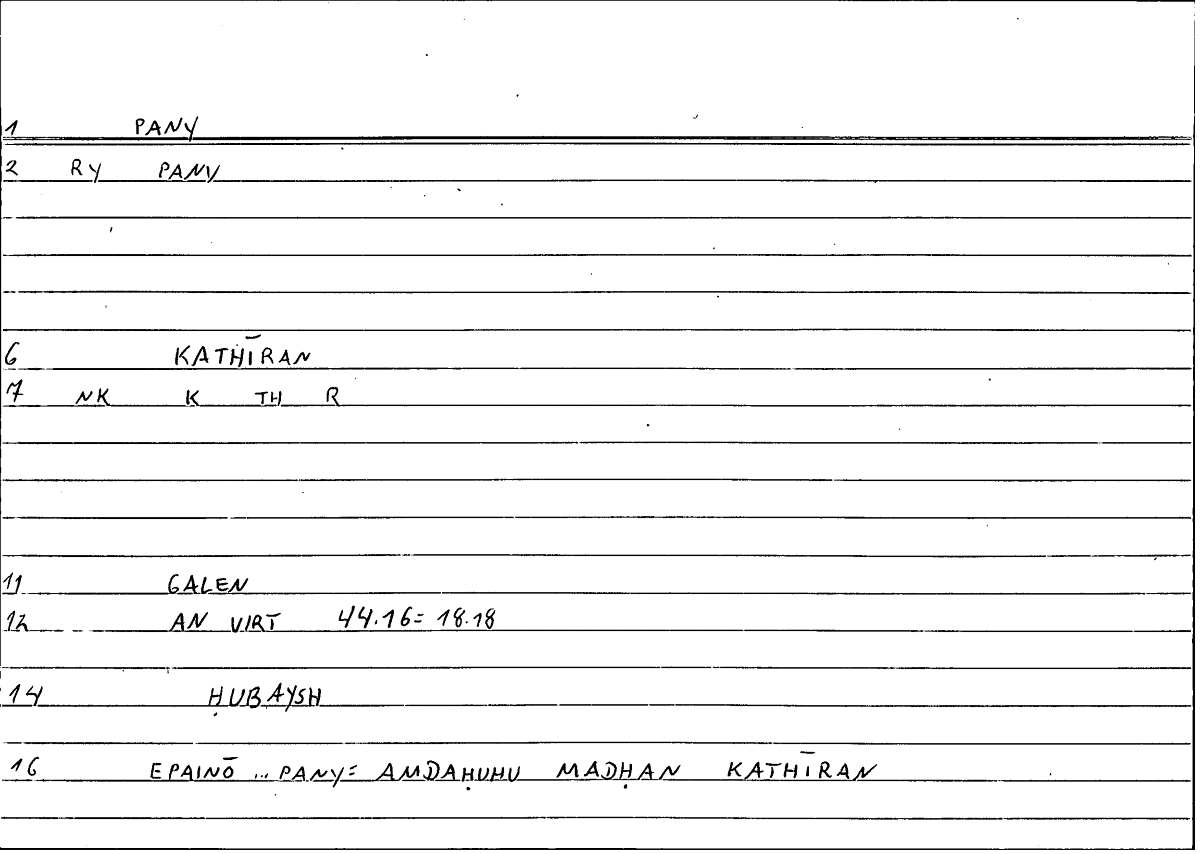 1 PANY
2 RY PANY
6 KATHĪRAN
7 NK K TH R
11 GALEN
12 AN VIRT 44.16= 18.18
14 ḤUBAYSH
16 EPAINŌ ... PANY= AMDAḤUHU MADḤAN KATHĪRAN